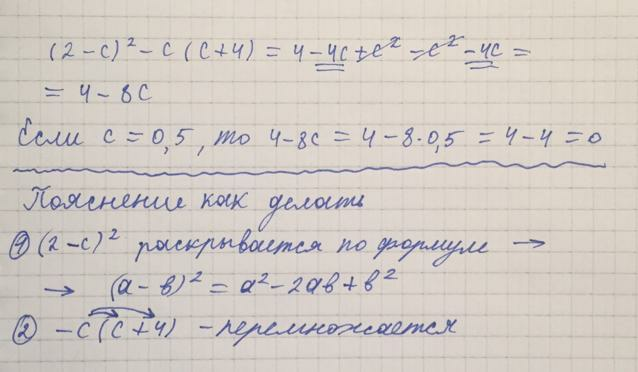 (2-c)² - c (c+4) = 4 - 4c + c² - c² - 4c =
= 4 - 8c
Если c = 0,5, то 4-8c = 4-8·0,5 = 4-4 = 0
Пояснение как делать
① (2-c)² раскрывается по формуле →
→ (а-в)² = а²-2ав+в²
② -c(c+4) - перемножается